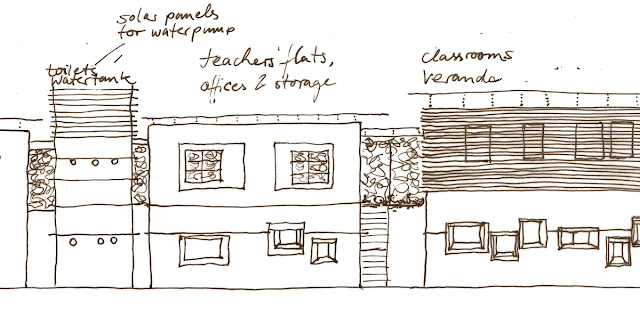 solar panels
for waterpump
toilets
watertank
teachers' flats,
offices & storage
classrooms
veranda